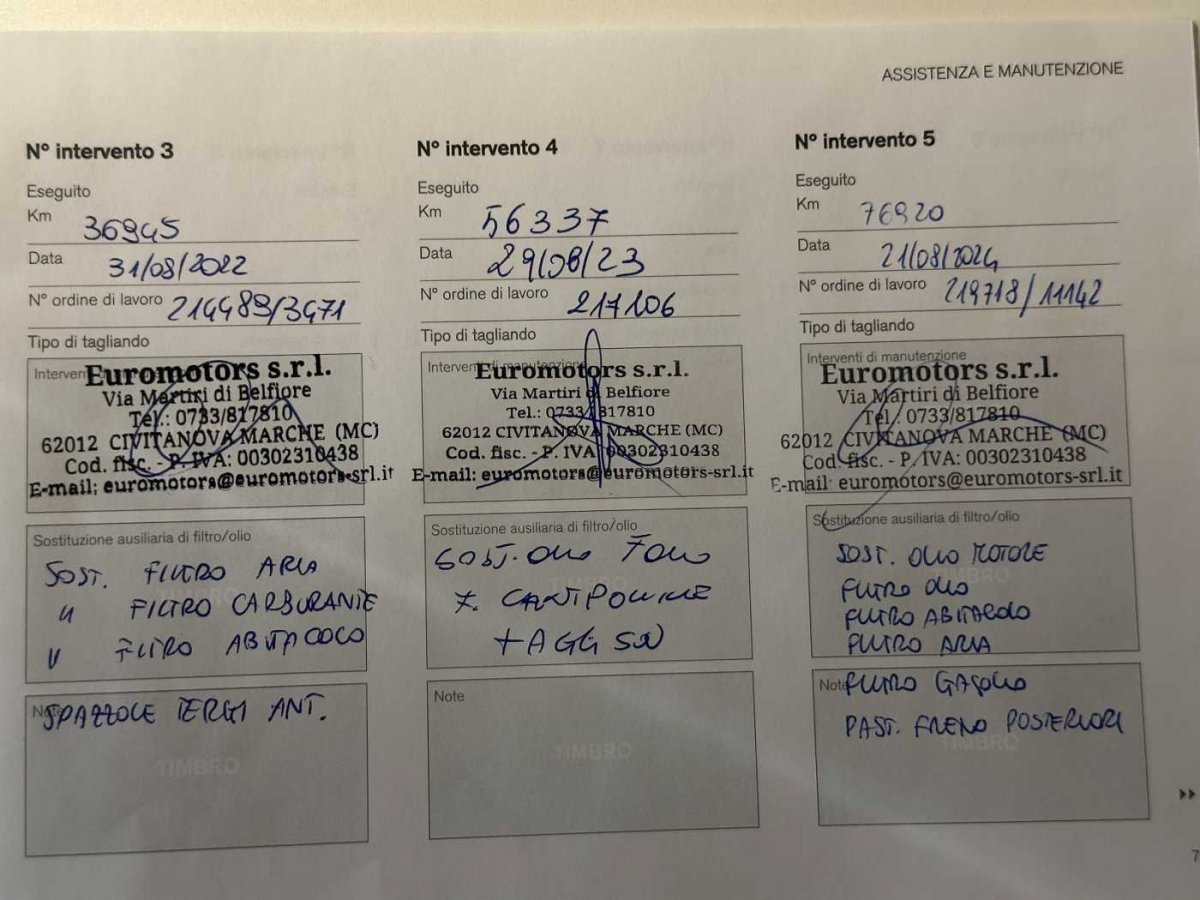 ASSISTENZA E MANUTENZIONE
N° intervento 3
Eseguito
Km 36945
Data 31/08/2022
N° ordine di lavoro 214489/3471
Tipo di tagliando
Interven
Euromotors s.r.l.
Via Martiri di Belfiore
Tel.: 0733/817810
62012 CIVITANOVA MARCHE (MC)
Cod. fisc. - P. IVA: 00302310438
E-mail: euromotors@euromotors-srl.it
Sostituzione ausiliaria di filtro/olio
SOST. FILTRO ARIA
" FILTRO CARBURANTE
" FILTRO ABITACOLO
Note
SPAZZOLE TERGI ANT.
TIMBRO
N° intervento 4
Eseguito
Km 56337
Data 29/08/23
N° ordine di lavoro 217106
Tipo di tagliando
Interventi di manutenzione
Euromotors s.r.l.
Via Martiri di Belfiore
Tel.: 0733/817810
62012 CIVITANOVA MARCHE (MC)
Cod. fisc. - P. IVA: 00302310438
E-mail: euromotors@euromotors-srl.it
Sostituzione ausiliaria di filtro/olio
SOST. OLIO
TIMBRO
Note
TIMBRO
N° intervento 5
Eseguito
Km 76920
Data 21/08/2024
N° ordine di lavoro 219718/11142
Tipo di tagliando
Interventi di manutenzione
Euromotors s.r.l.
Via Martiri di Belfiore
Tel. 0733/817810
62012 CIVITANOVA MARCHE (MC)
Cod. fisc. - P. IVA: 00302310438
E-mail: euromotors@euromotors-srl.it
Sostituzione ausiliaria di filtro/olio
SOST. OLIO MOTORE
TIMBRO
FILTRO OLIO
FILTRO ABITACOLO
FILTRO ARIA
Note FILTRO GASOLIO
PAST. FRENO POSTERIORI
TIMBRO
7